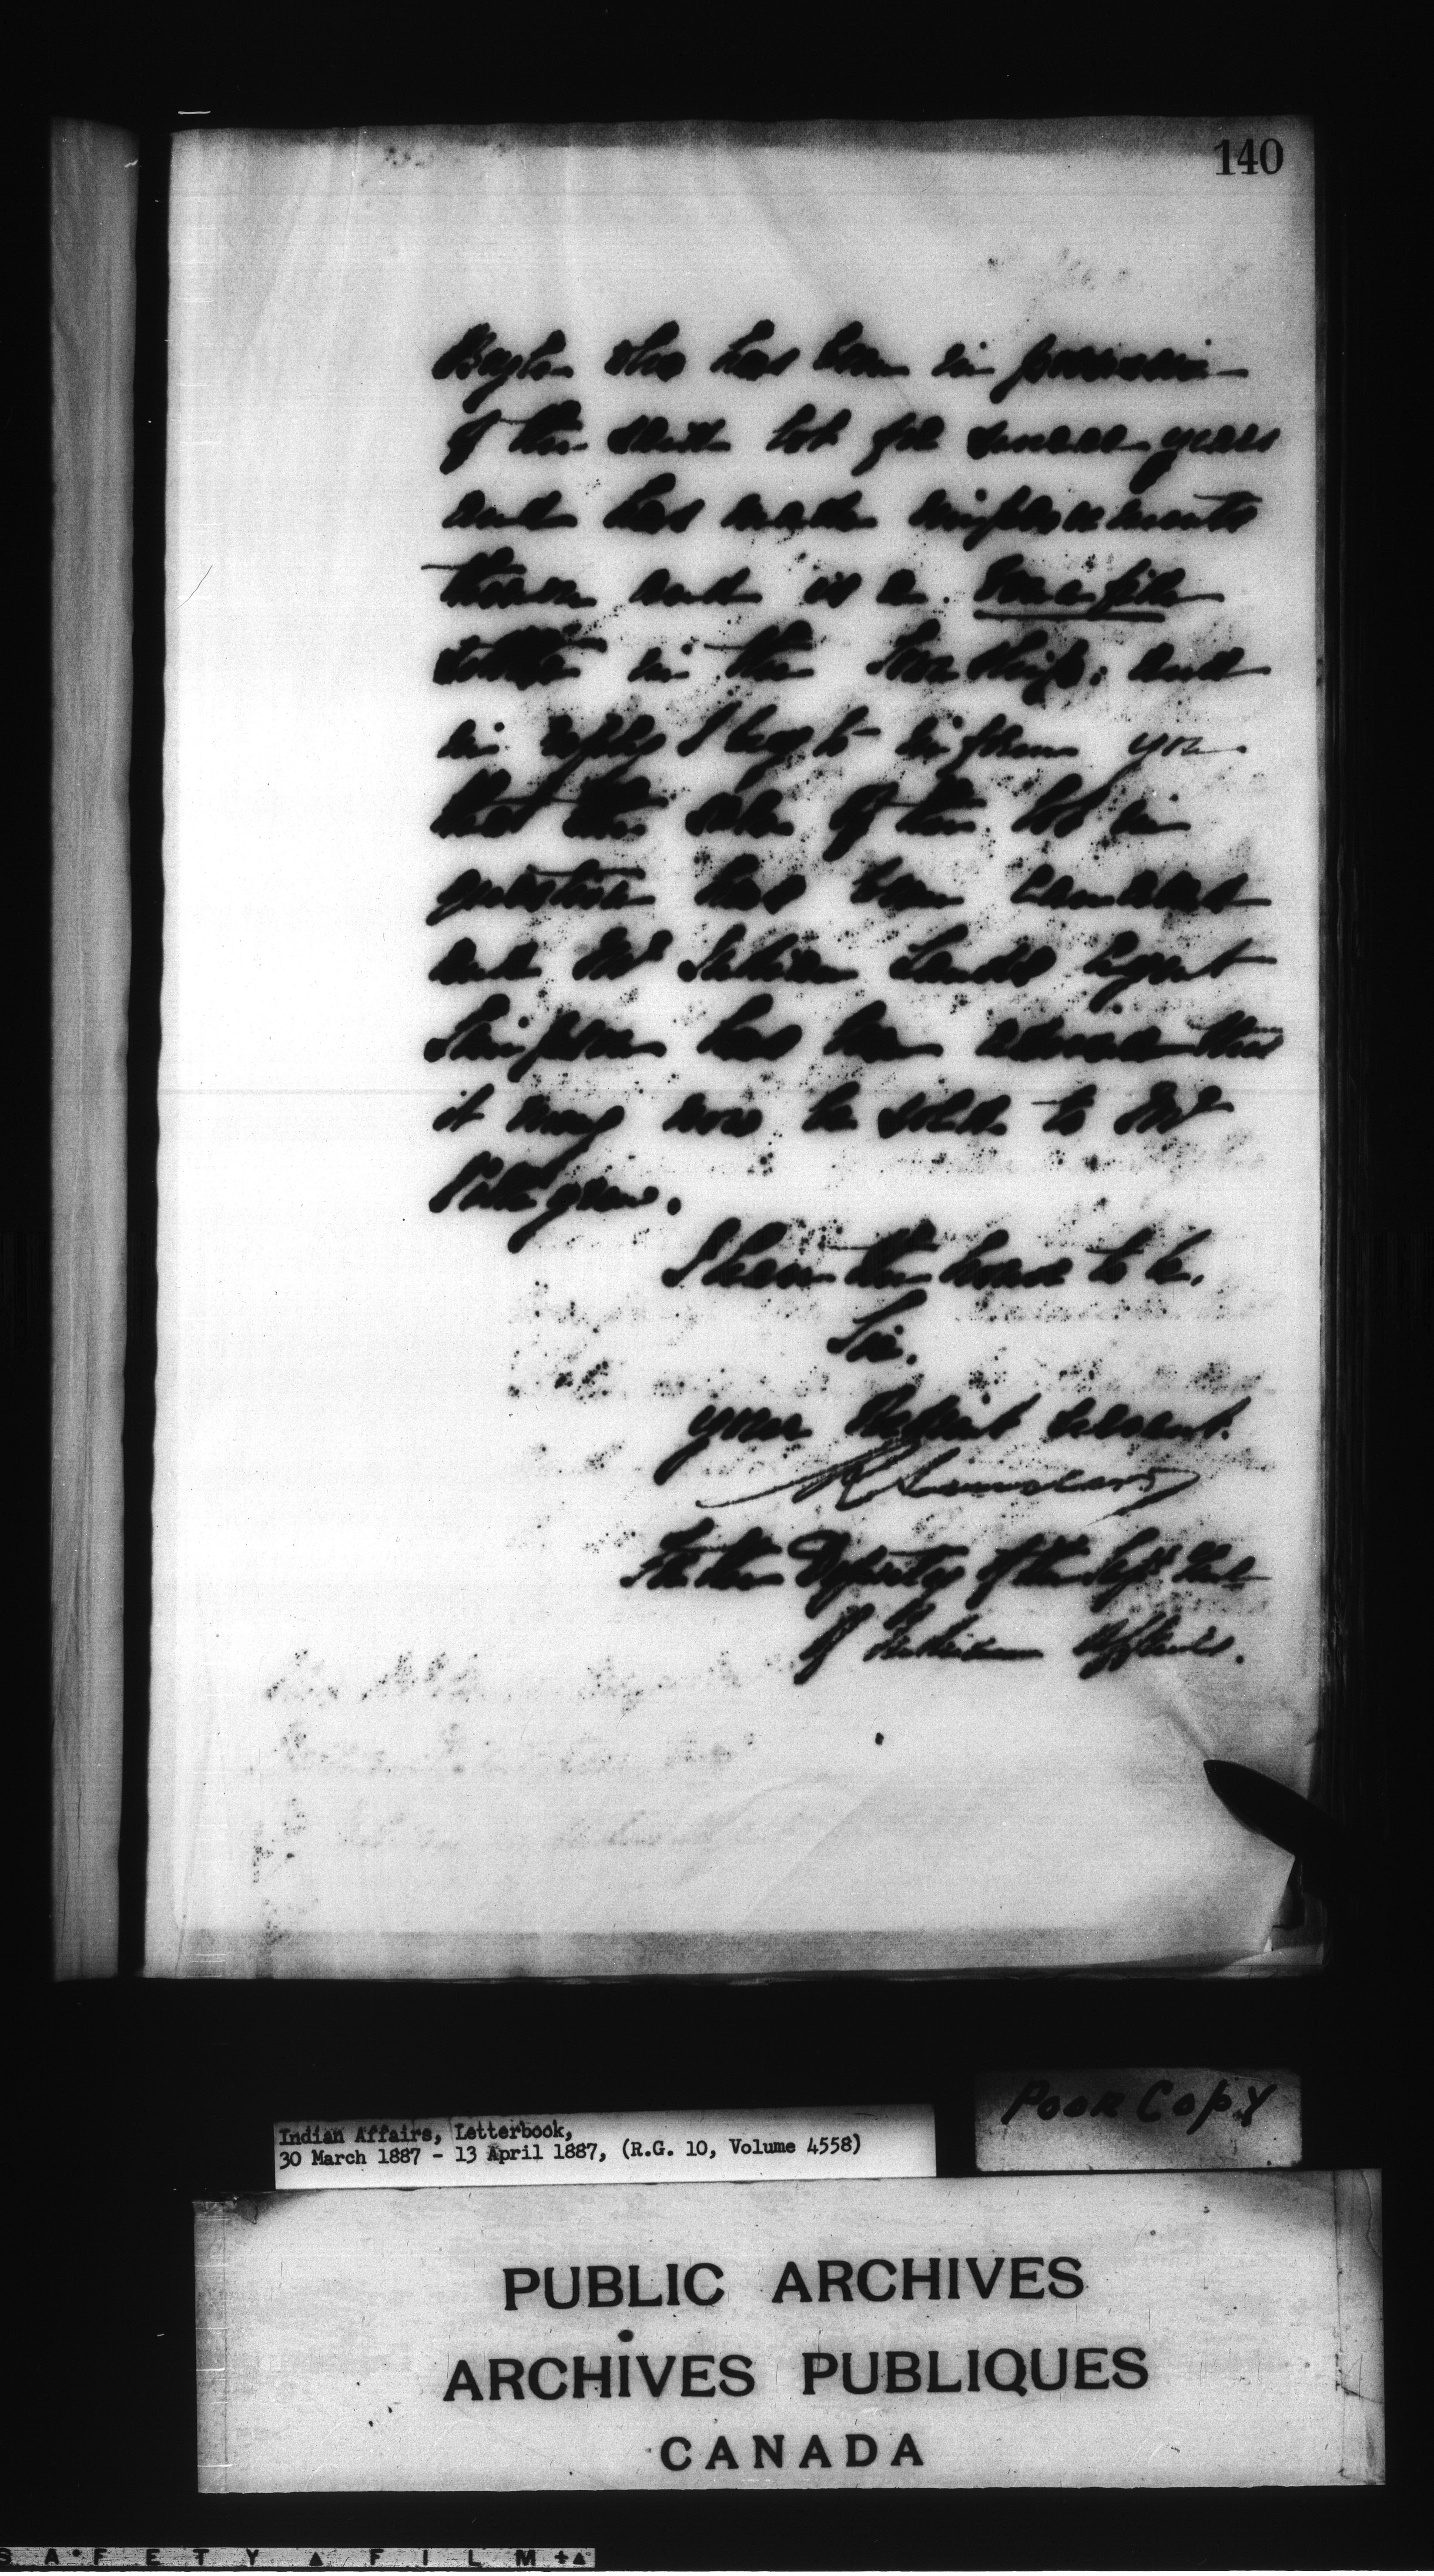 140
who has been in possession
of the said lot for several years
and has made improvements
thereon and is a bona fide
settler in the Township; and
in reply I beg to inform you
that the sale of the lot in
question has been cancelled
and Mr Indian Lands Agent
Simpson has been advised that
it may now be sold to Mr
Pettigrew.
I have the honor to be,
Sir,
your obedient servant.
For the Deputy of the Supt Genl
of Indian Affairs.
Poor Copy
Indian Affairs, Letterbook,
30 March 1887 - 13 April 1887, (R.G. 10, Volume 4558)
PUBLIC ARCHIVES
ARCHIVES PUBLIQUES
CANADA
SAFETY ▲ FILM